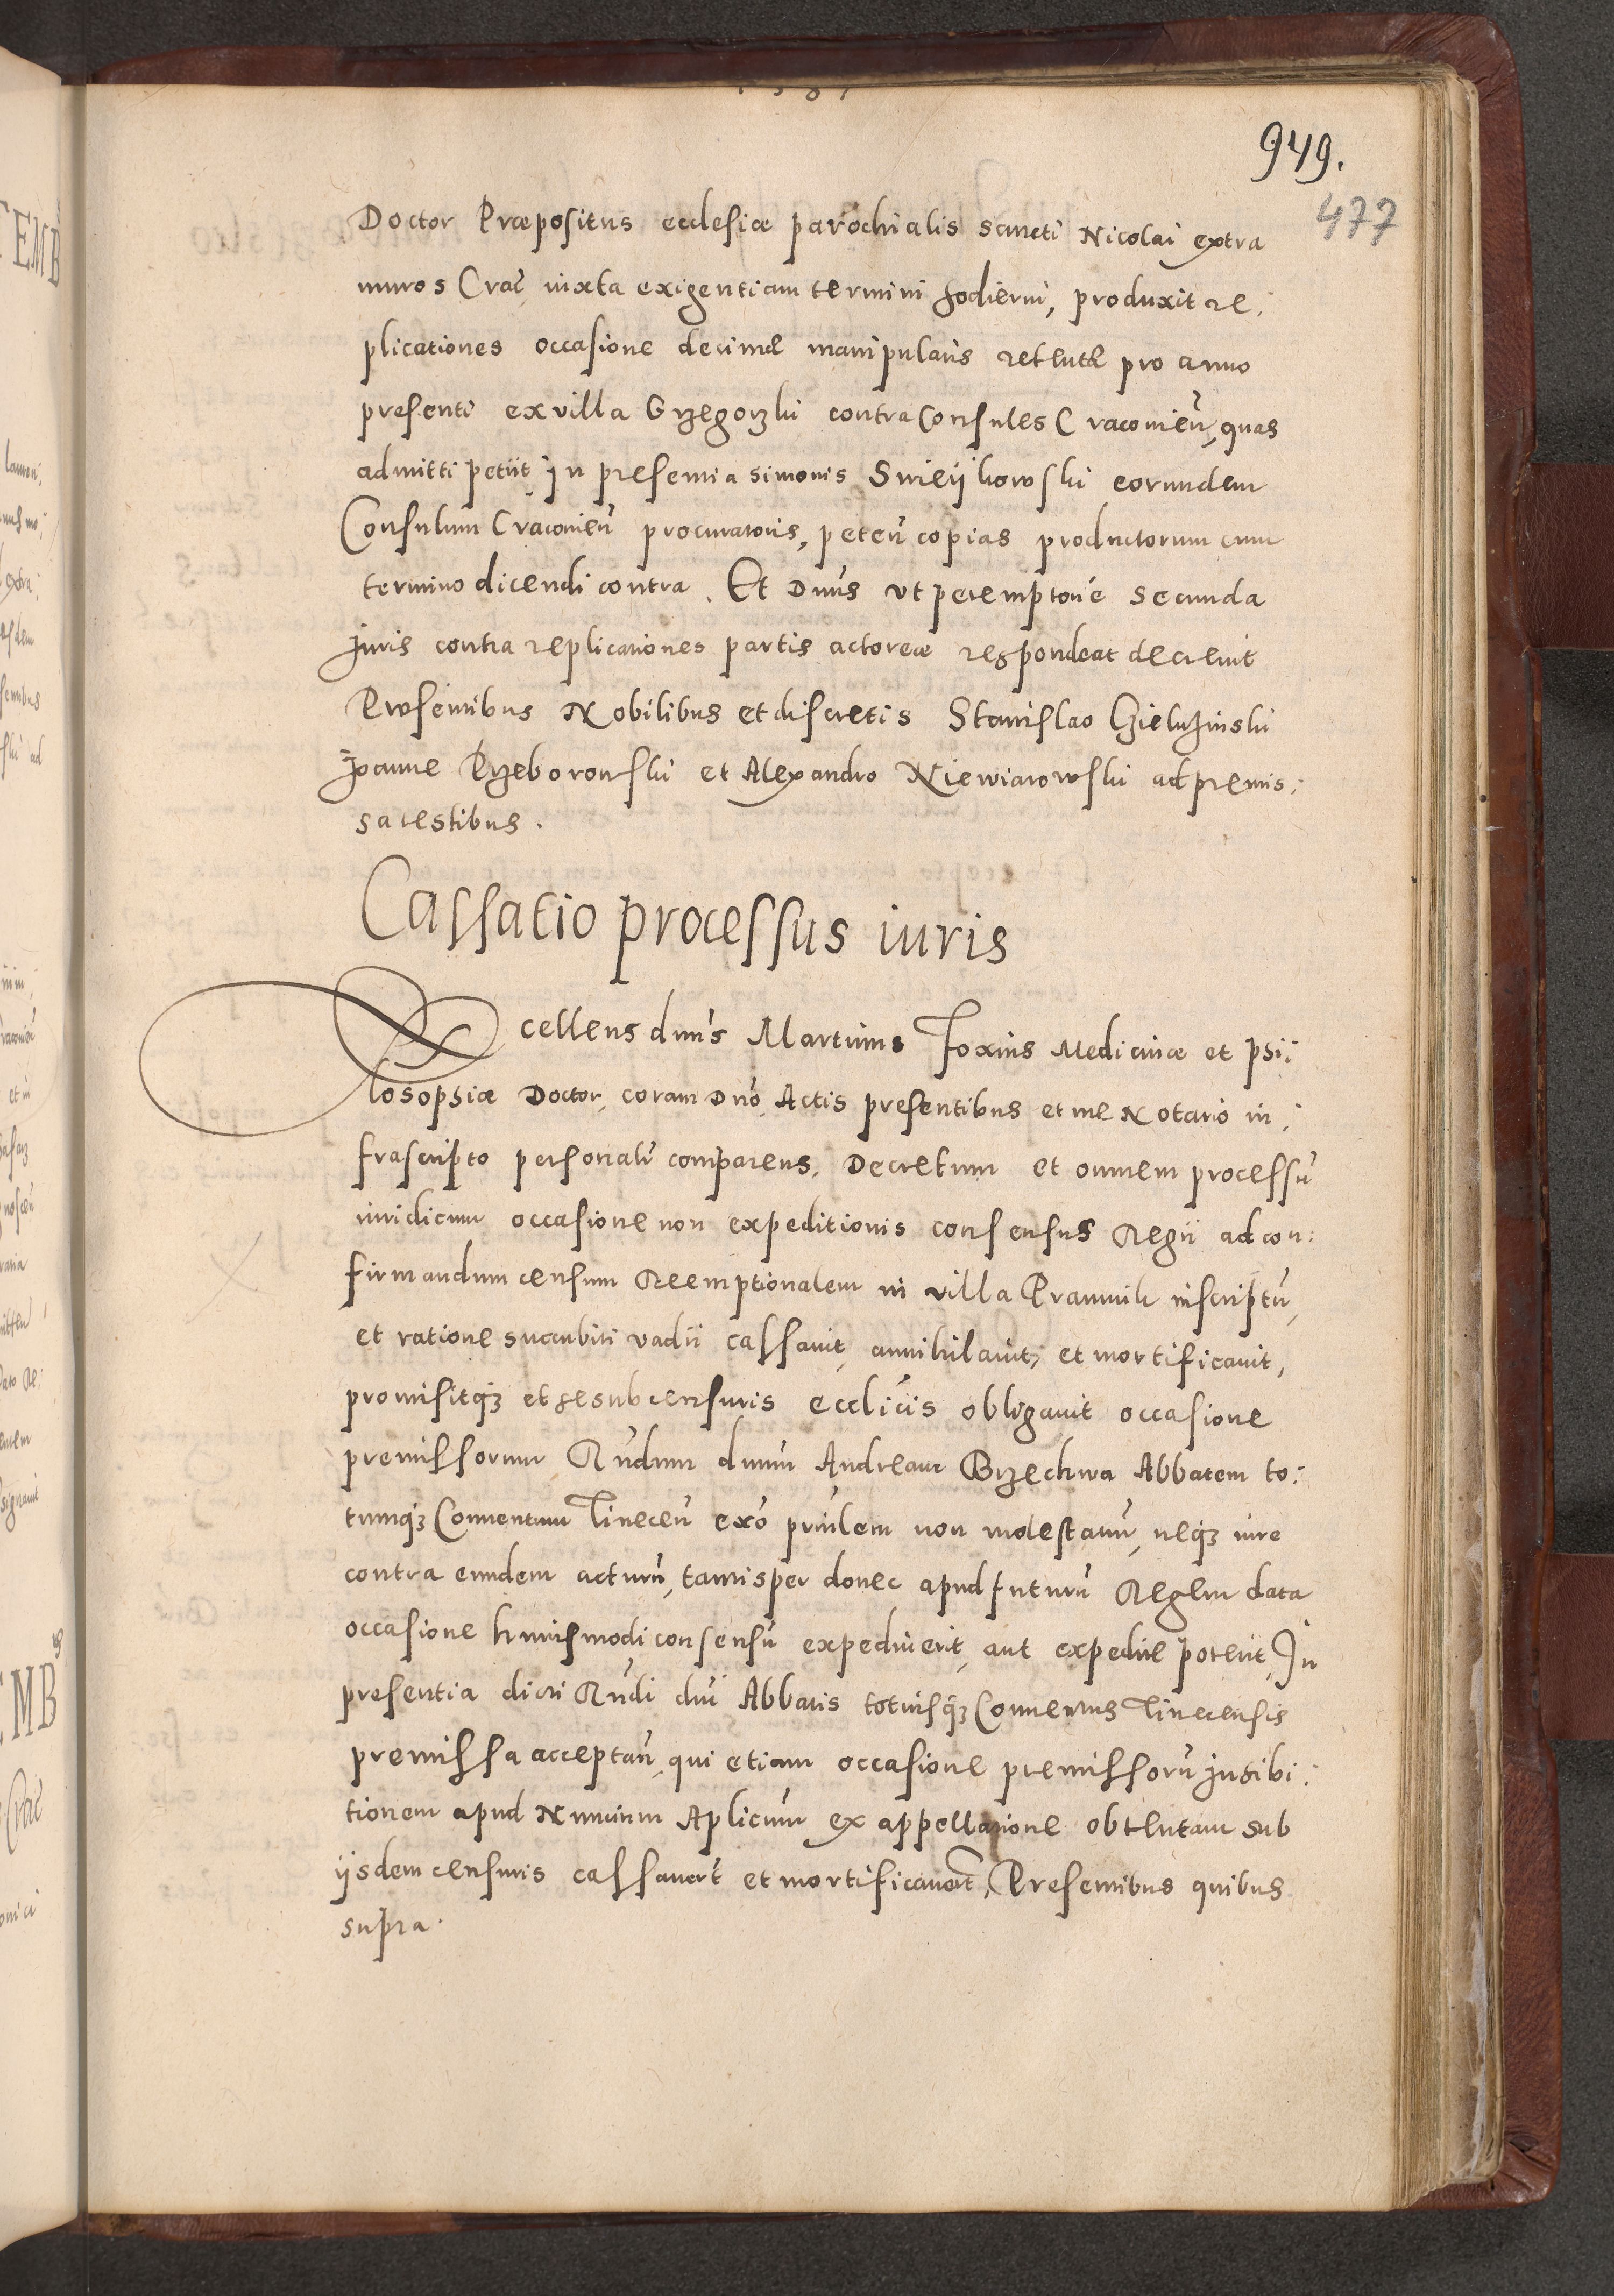 949.
477
Doctor Præpositus ecclesiæ parochialis sancti Nicolai extra
muros Crac̄ iuxta exigentiam termini hodierni, produxit re:
plicationes occasione decimæ manipularis retentæ pro anno
presenti ex villa Grzegorzki contra Consules Cracovien̄, quas
admitti petiit in presentia Simonis eorundem
Consulum Cracovien̄ procuratoris, peten̄ copias productorum cum
termino dicendi contra. Et Dnūs ut peremptorie secunda
Iuris contra replicationes partis actoreæ respondeat decrevit
Præsentibus Nobilibus et discretis Stanislao
Joanne Przeborowski et Alexandro Niewiarowski ad premis:
sa testibus.
Cassatio processus iuris
Excellens dnūs Martinus Foxius Medicinæ et phi:
losophiæ Doctor, coram Dnō Actis presentibus et me Notario in:
frascripto personalr̄ comparens, Decretum et omnem processū
iuridicum occasione non expeditionis consensus Regii ad con:
firmandum censum Reemptionalem in villa inscriptū,
et ratione succubiti vadii cassavit, annihilavit, et mortificavit,
promisitqꝫ et se sub censuris eccl̄icis obligavit occasione
premissorum Rn̄dum dnūm Andream Brzechwa Abbatem to:
tumqꝫ Conventum Tinecen̄ exō prīulem non molestatur̄, neqꝫ iure
contra eundem acturū, tamisper donec apud futurū Regem data
occasione huiusmodi consensū expediverit, aut expedire poterit, In
presentia dicti Rn̄di dn̄i Abbatis totiusqꝫ Conventus Tinecensis
premissa acceptan̄, qui etiam occasione premissorū inhibi:
tionem apud Nuncium Ap̄licum ex appellatione obtentam sub
iisdem censuris cassaverūt et mortificaverūt, Presentibus quibus
supra.